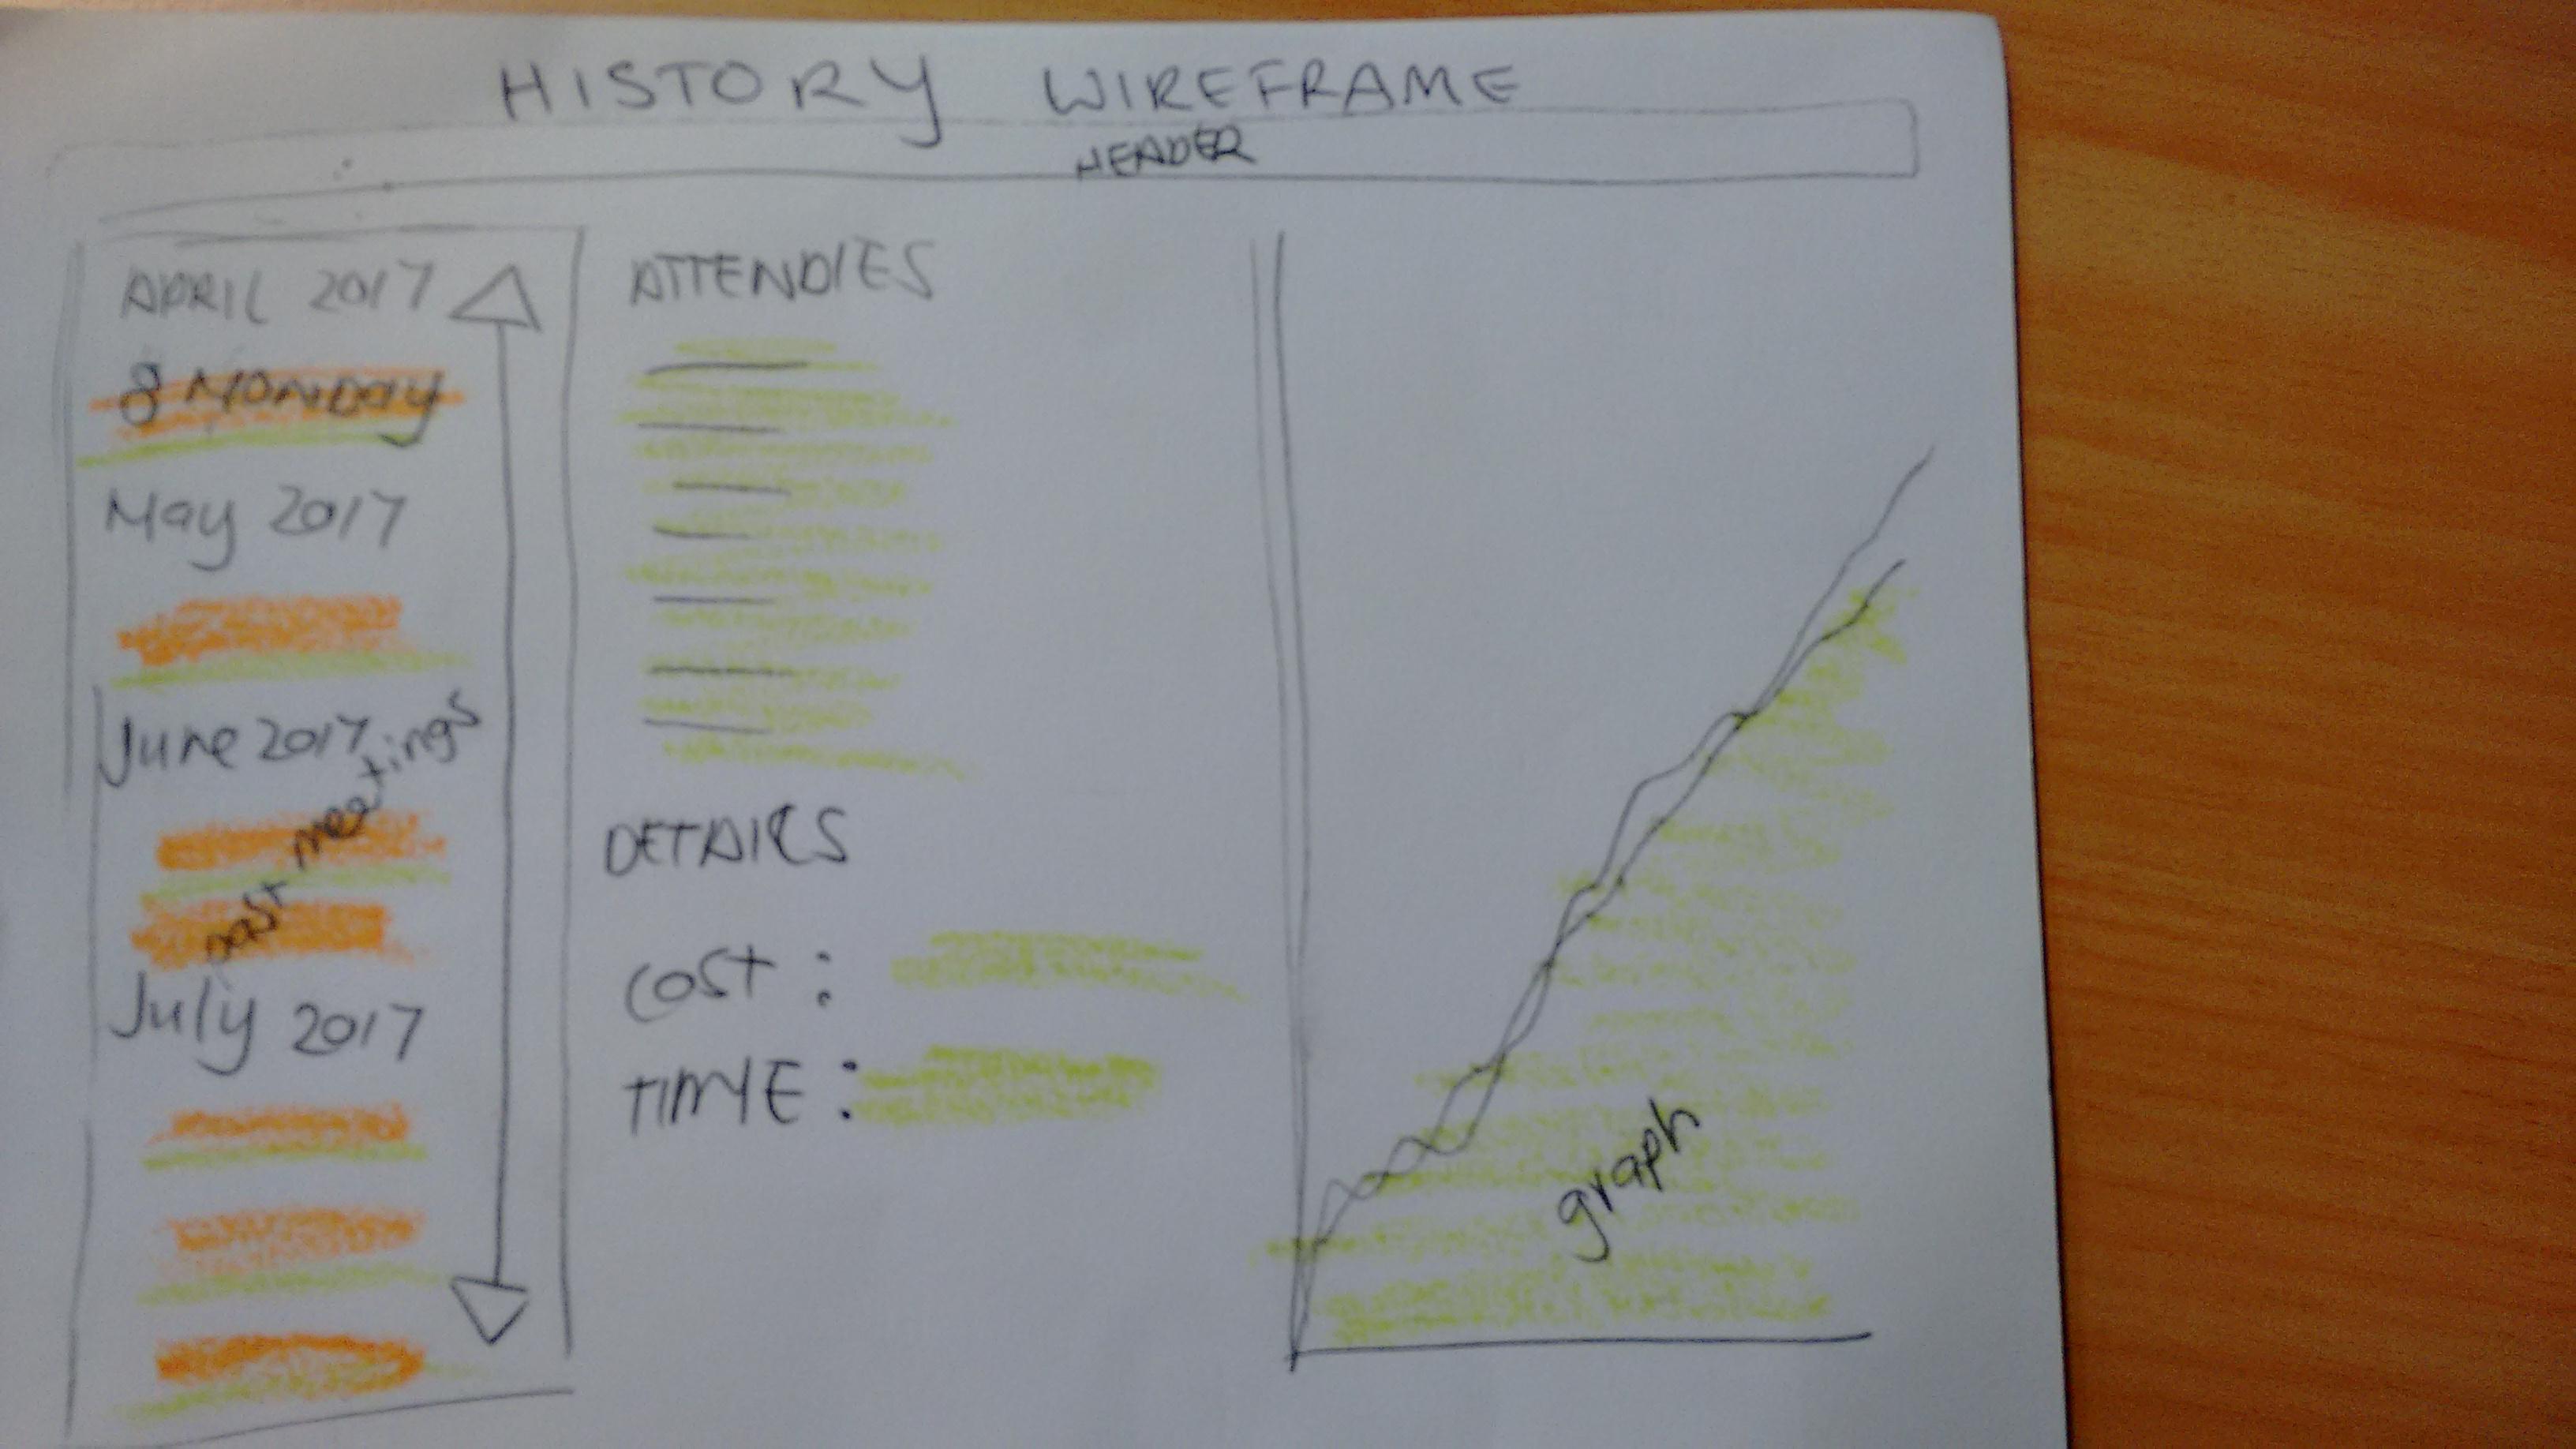 HISTORY WIREFRAME
HEADER
APRIL 2017
8 MONDAY
May 2017
June 2017
past meetings
July 2017
ATTENDIES
DETAILS
COST :
TIME :
graph